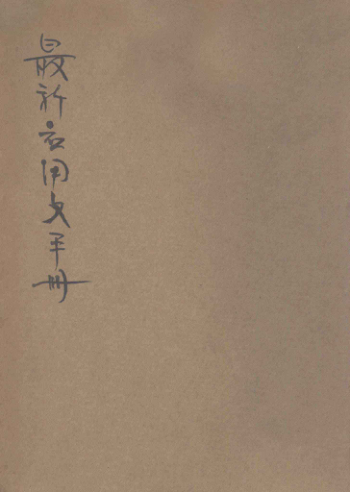 最新应用文手册